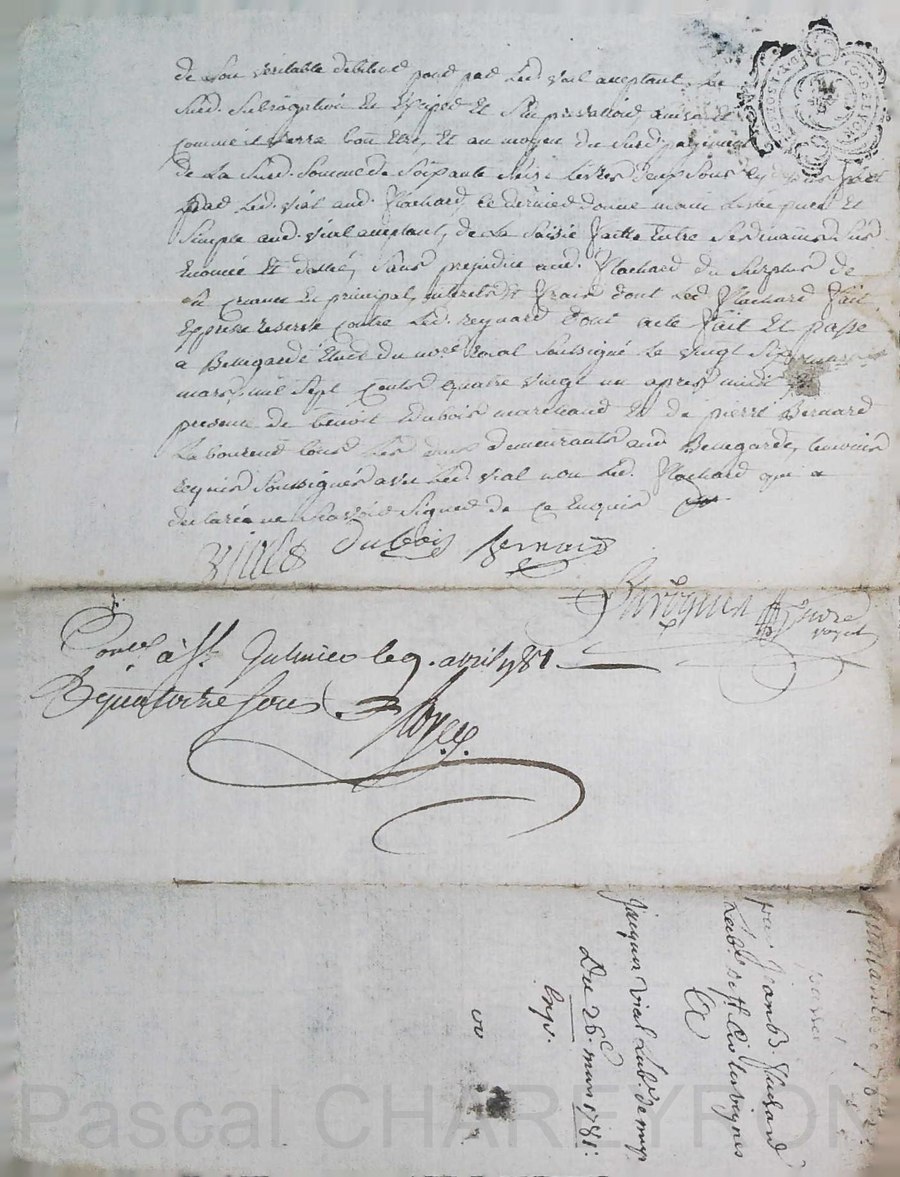 de Son veritable debiteur pour par Led. Vial acceptant
Sud. Subrogation Et Exiger Et S'en prevalloir, ainsi Et
comme il verra bon Etre, Et au moyen du Surd. payement
de La Sud. Somme de Soixante Seize Livres deux Sous
par Led. Vial aud. Flachard, Ce dernier donne main Levée pure Et
Simple aud. Vial acceptant, de La Saisie faitte Entre Ses mains Sus
Enoncée Et dattée, Sans prejudice aud. Flachard du Surplus de
Sa Creance En principal, interets Et frais dont Led. Flachard fait
Expresse reserve Contre Led. reynard Dont acte fait Et passé
a Bellegarde Etude du no.re royal Soussigné Le vingt Six
mars, mil Sept Cents quatre vingt un apres midi
presence de Benoit Dubois marchand Et de pierre Bernard
Laboureur tous Les deux demeurants aud. Bellegarde, temoins
requis Soussignés avec Led. Vial non Led. Flachard qui a
declaré ne Scavoir Signer de Ce Enquis
Vial Dubois Bernard
Con.lé à St. Galmier le 9. avril 1781
R. quatorze sous
quittance 76
passé
par Jean B. Flachard
Lab.r de St. Cir les vignes
A
Jacques Vial Lab.r de
Du 26.e mars 1781.
Exp.
Pascal CHAREYRON